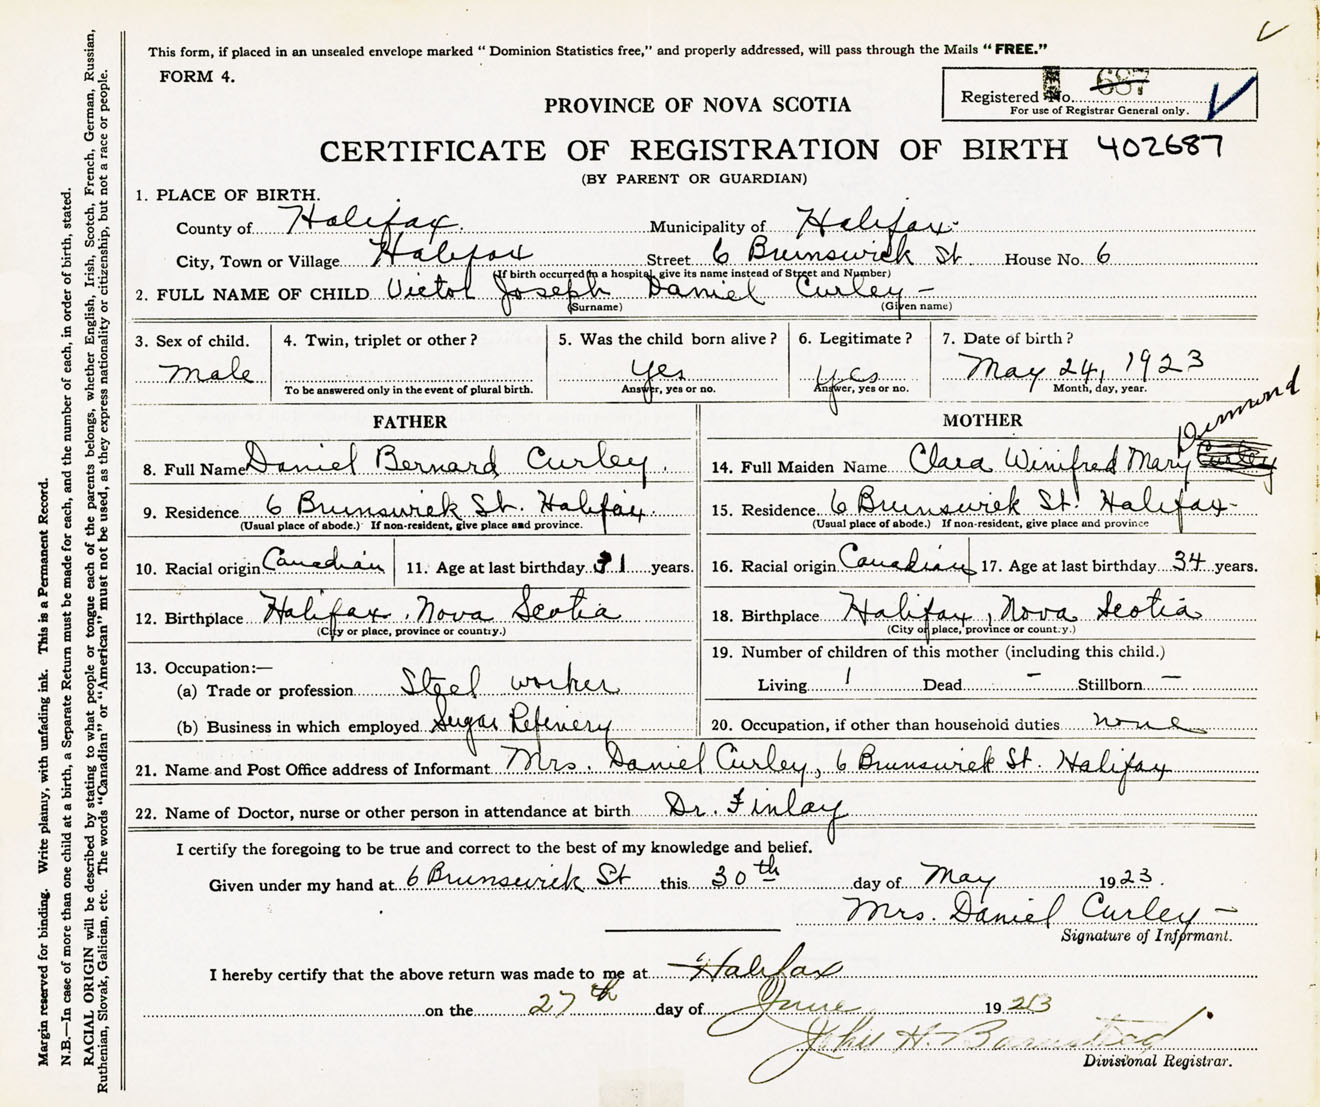 This form, if placed in an unsealed envelope marked “ Dominion Statistics free,” and properly addressed, will pass through the Mails “ FREE.”
FORM 4.
Registered No. 687
For use of Registrar General only.
PROVINCE OF NOVA SCOTIA
CERTIFICATE OF REGISTRATION OF BIRTH 402687
(BY PARENT OR GUARDIAN)
1. PLACE OF BIRTH.
County of Halifax Municipality of Halifax
City, Town or Village Halifax Street 6 Brunswick St House No. 6
(If birth occurred in a hospital, give its name instead of Street and Number)
2. FULL NAME OF CHILD Victor Joseph Daniel Curley -
(Surname) (Given name)
3. Sex of child. 4. Twin, triplet or other? 5. Was the child born alive? 6. Legitimate? 7. Date of birth?
male yes yes May 24, 1923
To be answered only in the event of plural birth. Answer, yes or no. Answer, yes or no. Month, day, year.
FATHER MOTHER
8. Full Name Daniel Bernard Curley. 14. Full Maiden Name Clara Winifred Mary Curley
9. Residence 6 Brunswick St. Halifax. 15. Residence 6 Brunswick St. Halifax-
(Usual place of abode.) If non-resident, give place and province. (Usual place of abode.) If non-resident, give place and province
10. Racial origin Canadian 11. Age at last birthday 31 years. 16. Racial origin Canadian 17. Age at last birthday 34 years.
12. Birthplace Halifax, Nova Scotia 18. Birthplace Halifax, Nova Scotia
(City or place, province or country.) (City or place, province or country.)
13. Occupation:— 19. Number of children of this mother (including this child.)
(a) Trade or profession Steel worker Living 1 Dead - Stillborn —
(b) Business in which employed Sugar Refinery 20. Occupation, if other than household duties none
21. Name and Post Office address of Informant Mrs. Daniel Curley, 6 Brunswick St. Halifax
22. Name of Doctor, nurse or other person in attendance at birth Dr. Finlay
I certify the foregoing to be true and correct to the best of my knowledge and belief.
Given under my hand at 6 Brunswick St this 30th day of May 1923.
Mrs. Daniel Curley -
Signature of Informant.
I hereby certify that the above return was made to me at Halifax
on the 27th day of June 1923
John H. Barnstead
Divisional Registrar.
Margin reserved for binding. Write plainly, with unfading ink. This is a Permanent Record.
N.B.—In case of more than one child at a birth, a Separate Return must be made for each, and the number of each, in order of birth, stated.
RACIAL ORIGIN will be described by stating to what people or tongue each of the parents belongs, whether English, Irish, Scotch, French, German, Russian,
Ruthenian, Slovak, Galician, etc. The words “Canadian” or “American” must not be used, as they express nationality or citizenship, but not a race or people.